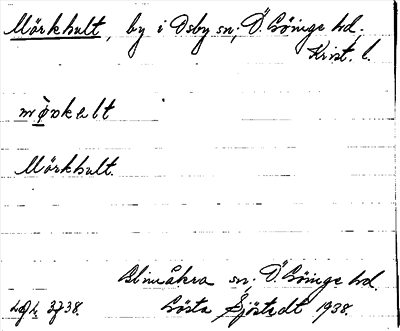 Mörkhult, by i Osby sn; Ö. Göinge hd,
Krist. l.
Mörkhult.
Glimåkra sn; Ö. Göinge hd.
Gösta Sjöstedt 1938.